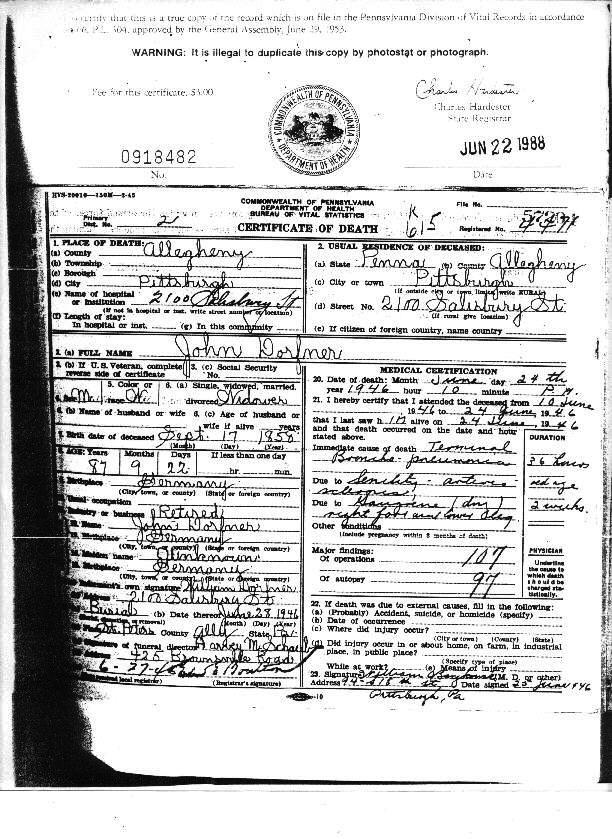 certify that this is a true copy of the record which is on file in the Pennsylvania Division of Vital Records in accordance
P.L. 304, approved by the General Assembly, June 29, 1953.
WARNING: It is illegal to duplicate this copy by photostat or photograph.
Fee for this certificate, $3.00
COMMONWEALTH OF PENNSYLVANIA
DEPARTMENT OF HEALTH
Charles Hardester
Charles Hardester
State Registrar
0918482
No.
JUN 22 1988
Date
HVS-20010-150M-2-45
COMMONWEALTH OF PENNSYLVANIA
DEPARTMENT OF HEALTH
BUREAU OF VITAL STATISTICS
CERTIFICATE OF DEATH
Primary Dist. No. 2
K 615
File No.
Registered No.
1. PLACE OF DEATH:
(a) County Allegheny
(b) Township
(c) Borough
(d) City Pittsburgh
(e) Name of hospital or institution 2100 Salisbury St
(If not in hospital or inst. write street number or location)
(f) Length of stay:
In hospital or inst. (g) In this community
2. USUAL RESIDENCE OF DECEASED:
(a) State Penna (b) County Allegheny
(c) City or town Pittsburgh
(If outside city or town limits, write RURAL)
(d) Street No. 2100 Salisbury St
(If rural give location)
(e) If citizen of foreign country, name country
3. (a) FULL NAME John Dorfner
3. (b) If U.S. Veteran, complete reverse side of certificate
3. (c) Social Security No.
4. Sex M 5. Color or race
6. (a) Single, widowed, married, divorced Widower
6. (b) Name of husband or wife 6. (c) Age of husband or wife if alive years
7. Birth date of deceased Sept. 17 1858
(Month) (Day) (Year)
8. AGE: Years Months Days If less than one day
87 9 22 hr. min.
Birthplace Germany
(City, town, or county) (State or foreign country)
Usual occupation
Industry or business Retired
Name John Dorfner
Birthplace Germany
(City, town, or county) (State or foreign country)
Maiden name Unknown
Birthplace Germany
(City, town, or county) (State or foreign country)
Informant's own signature William Dorfner
Address 2100 Salisbury St
Burial (b) Date thereof June 28, 1946
(Month) (Day) (Year)
County Alleg State Pa.
Signature of funeral director
Address 425 Brownsville Road
6-27-46
(Registrar's signature)
MEDICAL CERTIFICATION
20. Date of death: Month June day 24th
year 1946 hour 10 minute P.M.
21. I hereby certify that I attended the deceased from 10 June
1946 to 24 June, 1946
that I last saw him alive on 24 June, 1946
and that death occurred on the date and hour stated above.
DURATION
Immediate cause of death Terminal
Broncho-pneumonia 36 hours
Due to Senility - arterio
sclerosis; old age
Due to Gangrene (dry)
right foot and lower leg 2 weeks.
Other conditions
(Include pregnancy within 3 months of death)
Major findings:
Of operations 107
Of autopsy 97
PHYSICIAN
Underline the cause to which death should be charged statistically.
22. If death was due to external causes, fill in the following:
(a) (Probably) Accident, suicide, or homicide (specify)
(b) Date of occurrence
(c) Where did injury occur?
(City or town) (County) (State)
(d) Did injury occur in or about home, on farm, in industrial place, in public place?
(Specify type of place)
While at work? (e) Means of injury
23. Signature William (M.D. or other)
Address Date signed 25 June 46
Pittsburgh, Pa